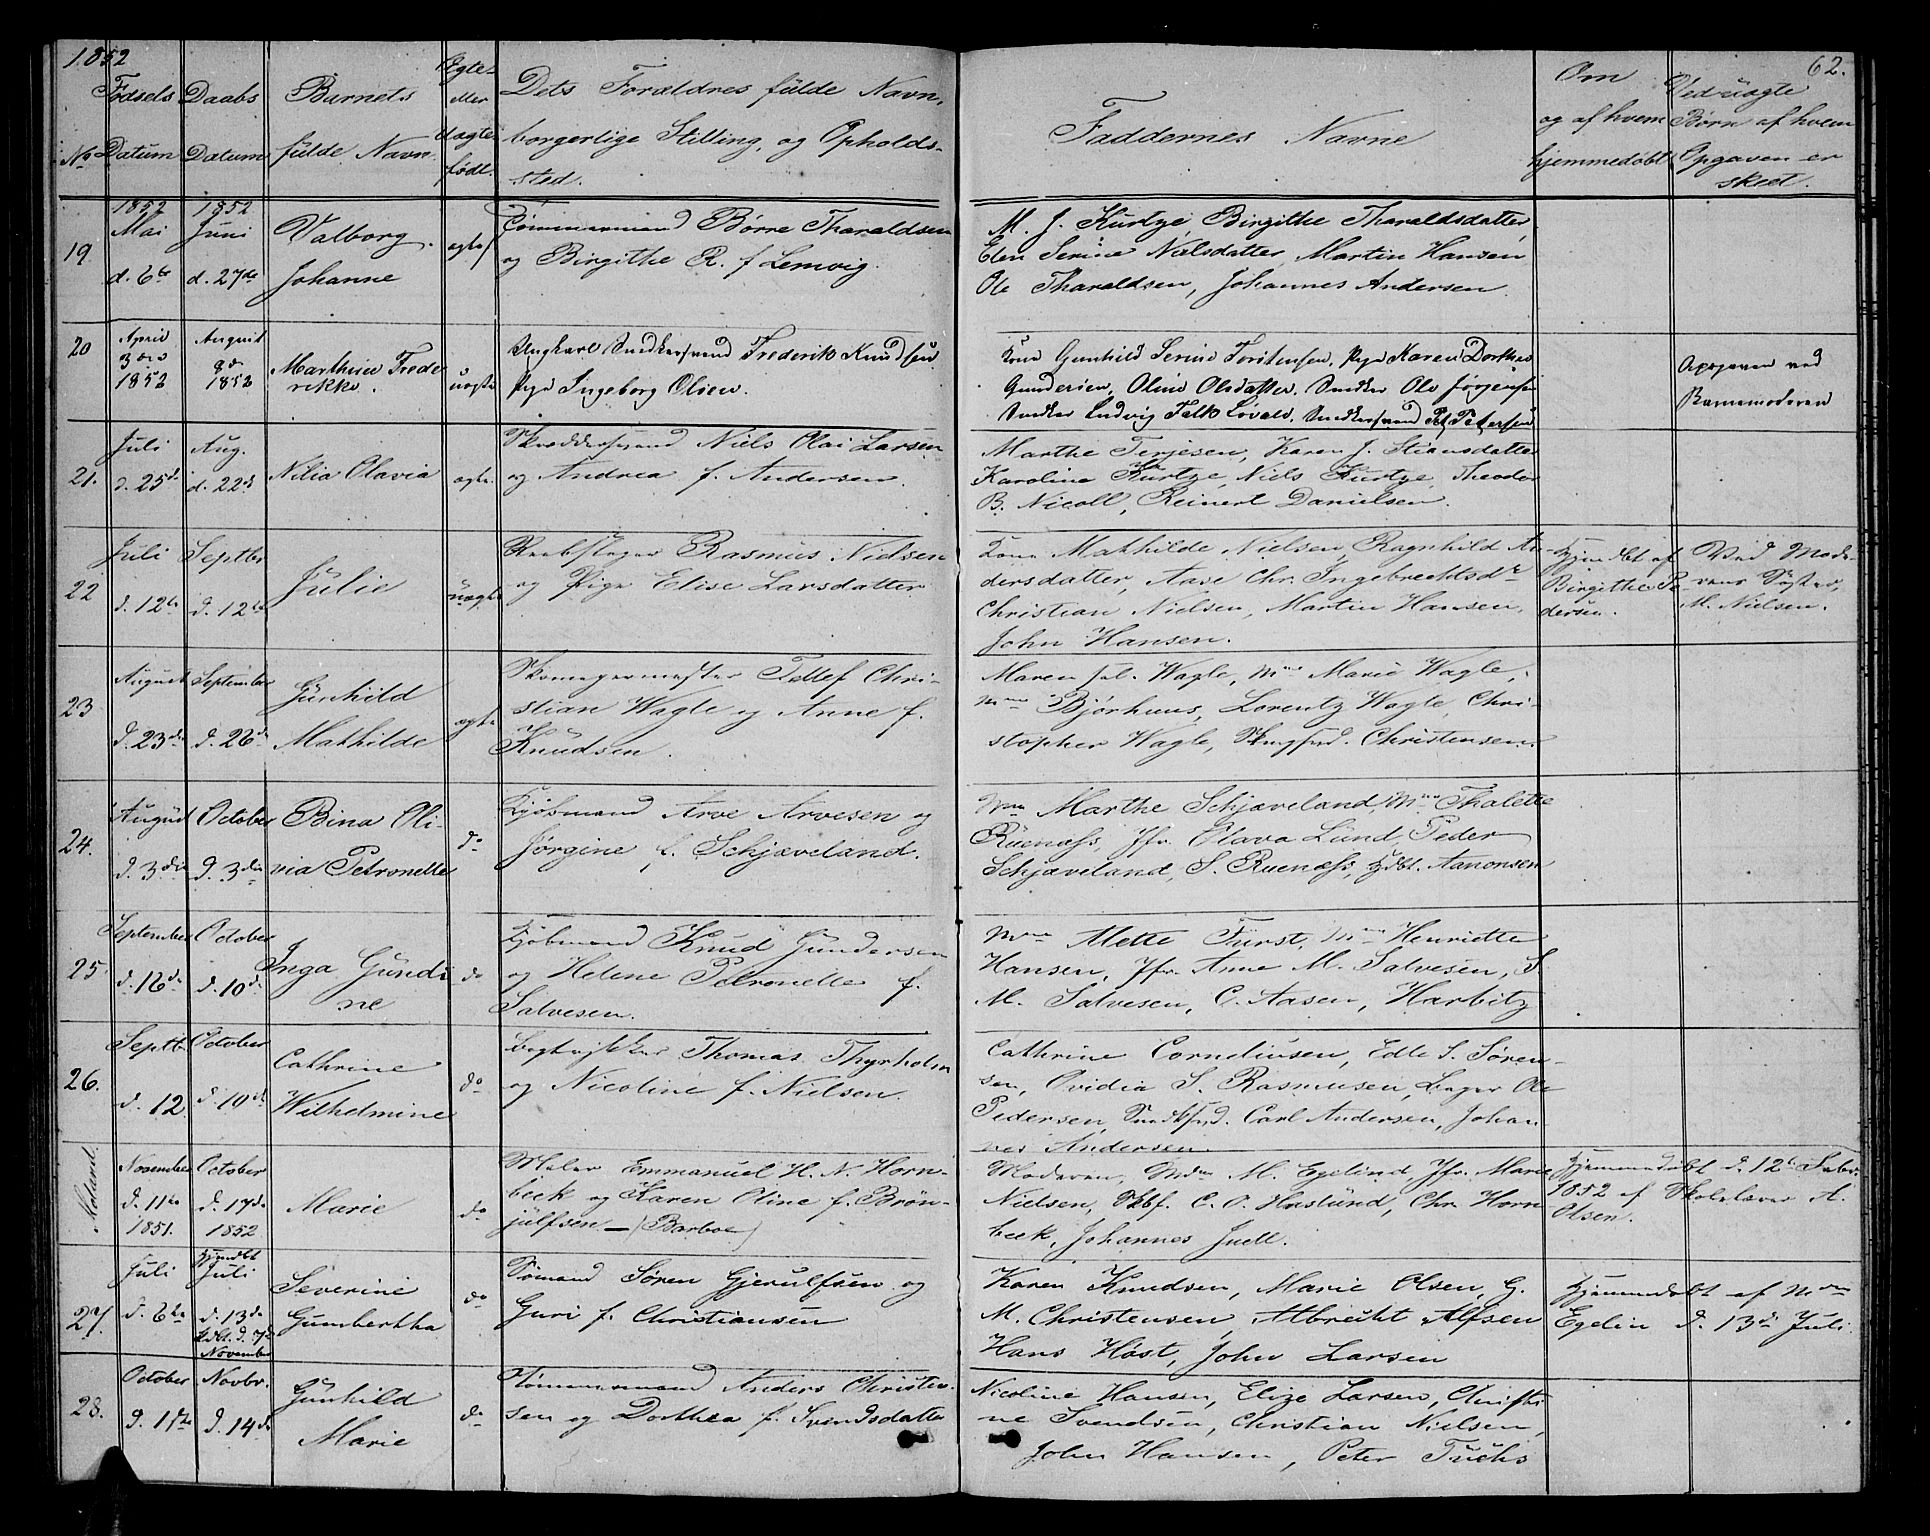 1852
62.
No
Fødsels Datum
Daabs Datum
Barnets fulde Navn
Ægte eller uægte født.
Dets Forældres fulde Navn, borgerlige Stilling, og Opholdssted.
Faddernes Navne
Om og af hvem hjemmedøbt
Ved uægte Børn af hvem Opgaven er skeet.
19
1852 Mai d. 6te
1852 Juni d. 27de
Valborg Johanne
ægte
Tømmermand Børre Tharaldsen
og Birgithe R. f Lemvig.
M. J. Kurtze, Birgithe Tharaldsdatter,
Elen Serine Nielsdatter, Martin Hansen
Ole Tharaldsen, Johannes Andersen.
20
April 3die 1852
August 8de 1852
Marthine Frederikke.
uægte
Ungkarl Snedkersvend Frederik Knudsen
Pige Ingeborg Olsen.
Kone Gunhild Serine Torstensen, Pige Karen Dorthea
Gundersen, Oline Olsdatter, Snedker Ole Jørgensen
Snedker Ludvig Falk Løvald, Snedkersvend Pet. Petersen
Opgiven ved
Barnemoderen
21.
Juli d. 25de
Aug. d. 22de
Nilia Olavia
ægte
Skræddersvend Niels Olai Larsen
og Andrea f. Andersen.
Marthe Terjesen, Karen J. Stiansdatter
Karoline Kurtze, Niels Kurtze, Theodor
B. Nicoll, Reinert Danielsen.
22
Juli d. 12te
Septbr d. 12te
Julie
uægte
Reebslager Rasmus Nielsen
og Pige Elise Larsdatter
Kone Mathilde Nielsen, Ragnhild An-
dersdatter, Aase Chr. Ingebrechtsdr
Christian Nielsen, Martin Hansen,
John Hansen.
Hjemdbt af
Birgithe Pe-
dersen.
Ved Mode-
rens Søster,
M. Nielsen.
23
August d. 23de
September d. 26de
Gunhild Mathilde
ægte
Skomagermester Tellef Chri-
stian Wagle og Anne f.
Knudsen.
Maren sal. Wagle, Mme Marie Wagle,
Mme Bjørhuus, Lorentz Wagle, Chri-
stopher Wagle, Christensen.
24.
August d. 3die
October d. 3die
Bina Oli-
via Petronelle
do
Kjøbmand Arve Arvesen og
Jørgine f. Schjæveland.
Mme Marthe Schjæveland, Mme Thalette
Ruenæss, Jfr. Olava Lund, Peder
Schjæveland, S. Ruenæss, Aanonsen
25.
September d. 16de
October d. 10de
Inga Gundi
ne
do
Kjøbmand Knud Gundersen
og Helene Petronelle f.
Salvesen.
Mme Mette Fürst, Mme Henriette
Hansen, Jfr. Anne M. Salvesen, S.
M. Salvesen, C. Aasen, Harbitz
26.
Septb d. 12
October d. 10de
Cathrine
Wilhelmine
do
Thomas Thyrholm
og Nicoline f. Nielsen.
Cathrine Corneliusen, Edle S. Søren-
sen, Ovidia S. Rasmusen, Ole
Pedersen, Carl Andersen, Johan
nes Andersen.
Moland.
November d. 11te 1851.
October d. 17de 1852
Marie
do
Maler Emmanuel H. N. Horn-
beck og Karen Oline f. Brøn-
julfsen — (Barboe)
Moderen, Mdm M. Egelind, Jfr. Marie
Nielsen, C. O. Haslund, Chr. Horn
beck, Johannes Juell.
Hjemmedøbt d. 12te Febr.
1852 af Skolelærer A.
Olsen.
27.
Juli d. 6te
Hjemdbt Juli d. 13de
Kdbt. d. 7de November
Severine
Gumbertha
do
Sømand Søren Gjerulfsen og
Guri f. Christiansen
Karen Knudsen, Marie Olsen, G.
M. Christensen, Albrecht Alfsen
Hans Høst, John Larsen
Hjemmedøbt af Mdm
Egelin d. 13de Juli.
28.
October d. 17de
Novbr. d. 14de
Gunhild
Marie
do
Tømmermand Anders Christen-
sen og Dorthea f. Svendsdatter
Nicoline Hansen, Elize Larsen, Christi
ne Svendsen, Christian Nielsen,
John Hansen, Peter Fuchs